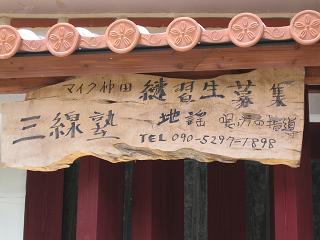 マイク神田 練習生募集
三線塾 地謡
TEL 090-5297-1898